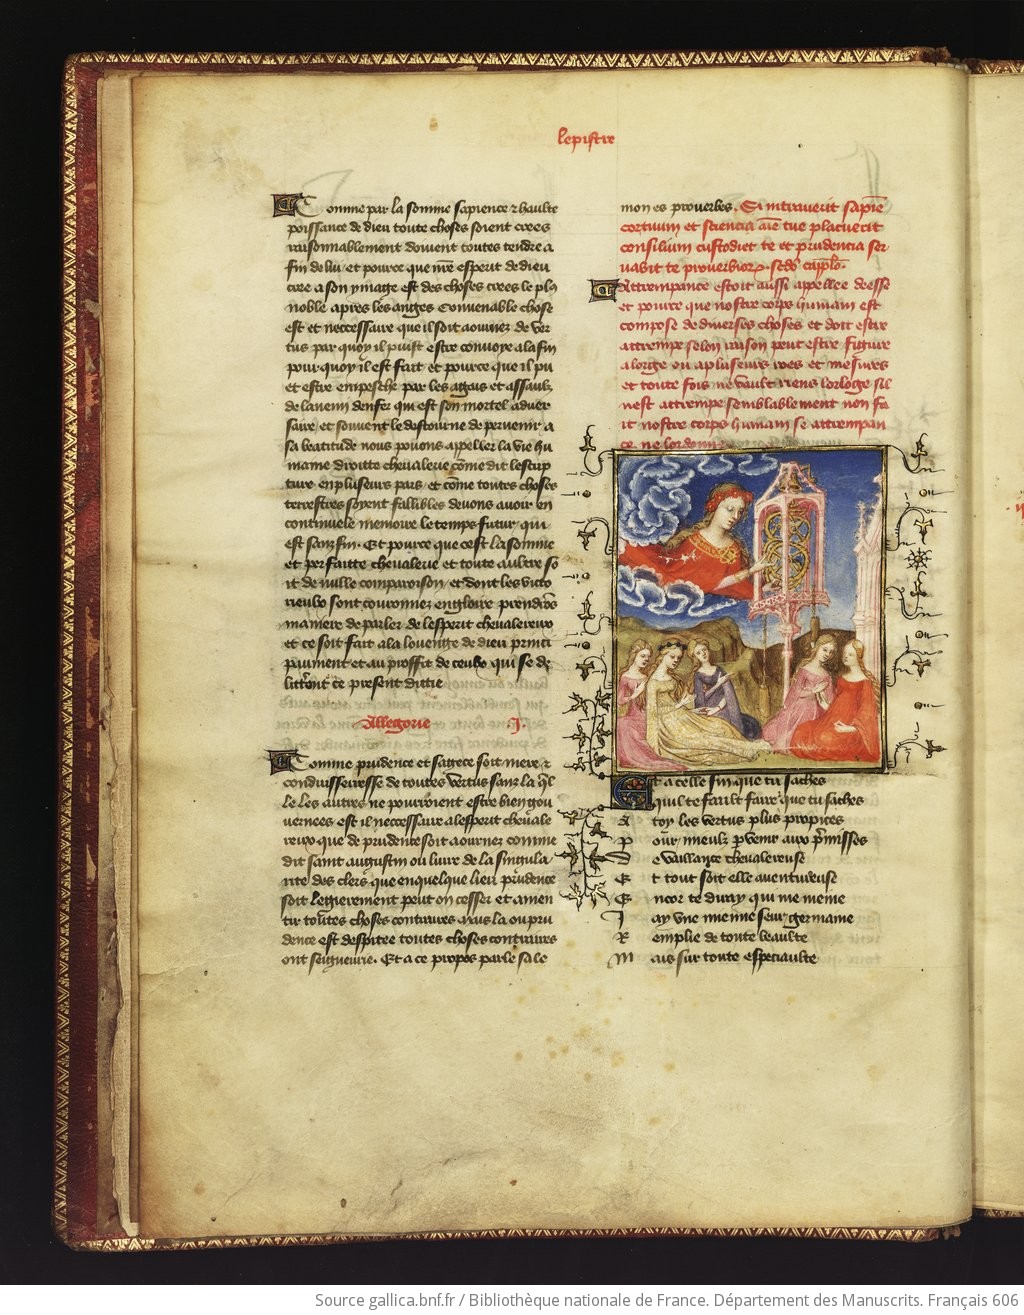 Lepistre
Comme par la somme sapience & haulte
poissance de dieu toute choses soient crees
raisonnablement doivent toutes tendre a
fin de lui et pource que nre esperit de dieu
cree a son ymage est des choses crees le plus
noble apres les anges Convenable chose
est et neccessaire que il soit aournez de ver
tus par quoy il puist estre convoye a la fin
pour quoy il est fait et pource que il pu
et estre empesche par les agais et assaulz
de lanemi denfer qui est son mortel adver
saire et souvent le destourne de pervenir a
sa beatitude nous pouons appeller la vie hu
maine droitte chevalerie come dit lescrip
ture en pluseurs pars et come toutes choses
terrestres soyent faillibles devons avoir en
continuele memoire le temps futur qui
est sanz fin. Et pource que cest la somme
et parfaitte chevalerie et toute aultre so
it de nulle comparoison et dont les victo
rieux sont couronnez en gloire prendrons
maniere de parler de lesperit chevalereux
et ce soit fait a la louenge de dieu princi
paument et au proffit de ceulx qui se de
littront ce present dittie
Allegorie J.
Comme prudence et sagece soit mere &
conduisserresse de toutes vertus sanz la ql
le les autres ne pourroient estre bien gou
vernees est il neccessaire a lesperit chevale
reux que de prudence soit aournez comme
dit saint augustin ou livre de la singula
rite des clers que en quelque lieu prudence
soit legierement peut on cesser et anien
tir toutes choses contraires mais la ou pru
dence est despitee toutes choses contraires
ont seigneurie. Et a ce propos parle sale
mon es proverbes. Si intraverit sapie
cortuum et sciencia aie tue placuerit
consilium custodiet te et prudencia ser
vabit te proverbior. scdo caplo.
Attrempance estoit aussi appellee deesse
et pource que nostre corps humain est
compose de diverses choses et doit estre
attrempe selon raison peut estre figure
a lorge ou a pluseurs roes et mesures
et toute fois ne vault riens lorloge sil
nest attrempe semblablement non fa
it nostre corps humain se attrempan
ce ne lordonne
Et a celle fin que tu saches
Quil te fault faire que tu saches
A toy les vertus plus propices
Pour mieulx pvenir aux pmisses
De vaillance chevalereuse
Et tout soit elle aventureuse
Encor te diray qui me meine
Jay une mienne seur germaine
Remplie de toute beaulte
Mais sur toute especiaulte
Source gallica.bnf.fr / Bibliothèque nationale de France. Département des Manuscrits. Français 606